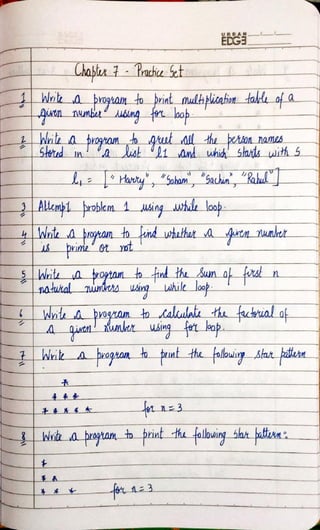 URBAN
EDGE
Chapter 7 - Practice Set
1 Write a program to print multiplication table of a
given number using for loop.
2 Write a program to greet all the person names
stored in a list l1 and which starts with S
l1 = ["Harry", "Soham", "Sachin", "Rahul"]
3 Attempt problem 1 using while loop.
4 Write a program to find whether a given number
is prime or not
5 Write a program to find the sum of first n
natural numbers using while loop.
6 Write a program to calculate the factorial of
a given number using for loop.
7 Write a program to print the following star pattern
*
* * *
* * * * *     for n = 3
8 Write a program to print the following star pattern:
*
* *
* * *     for n = 3